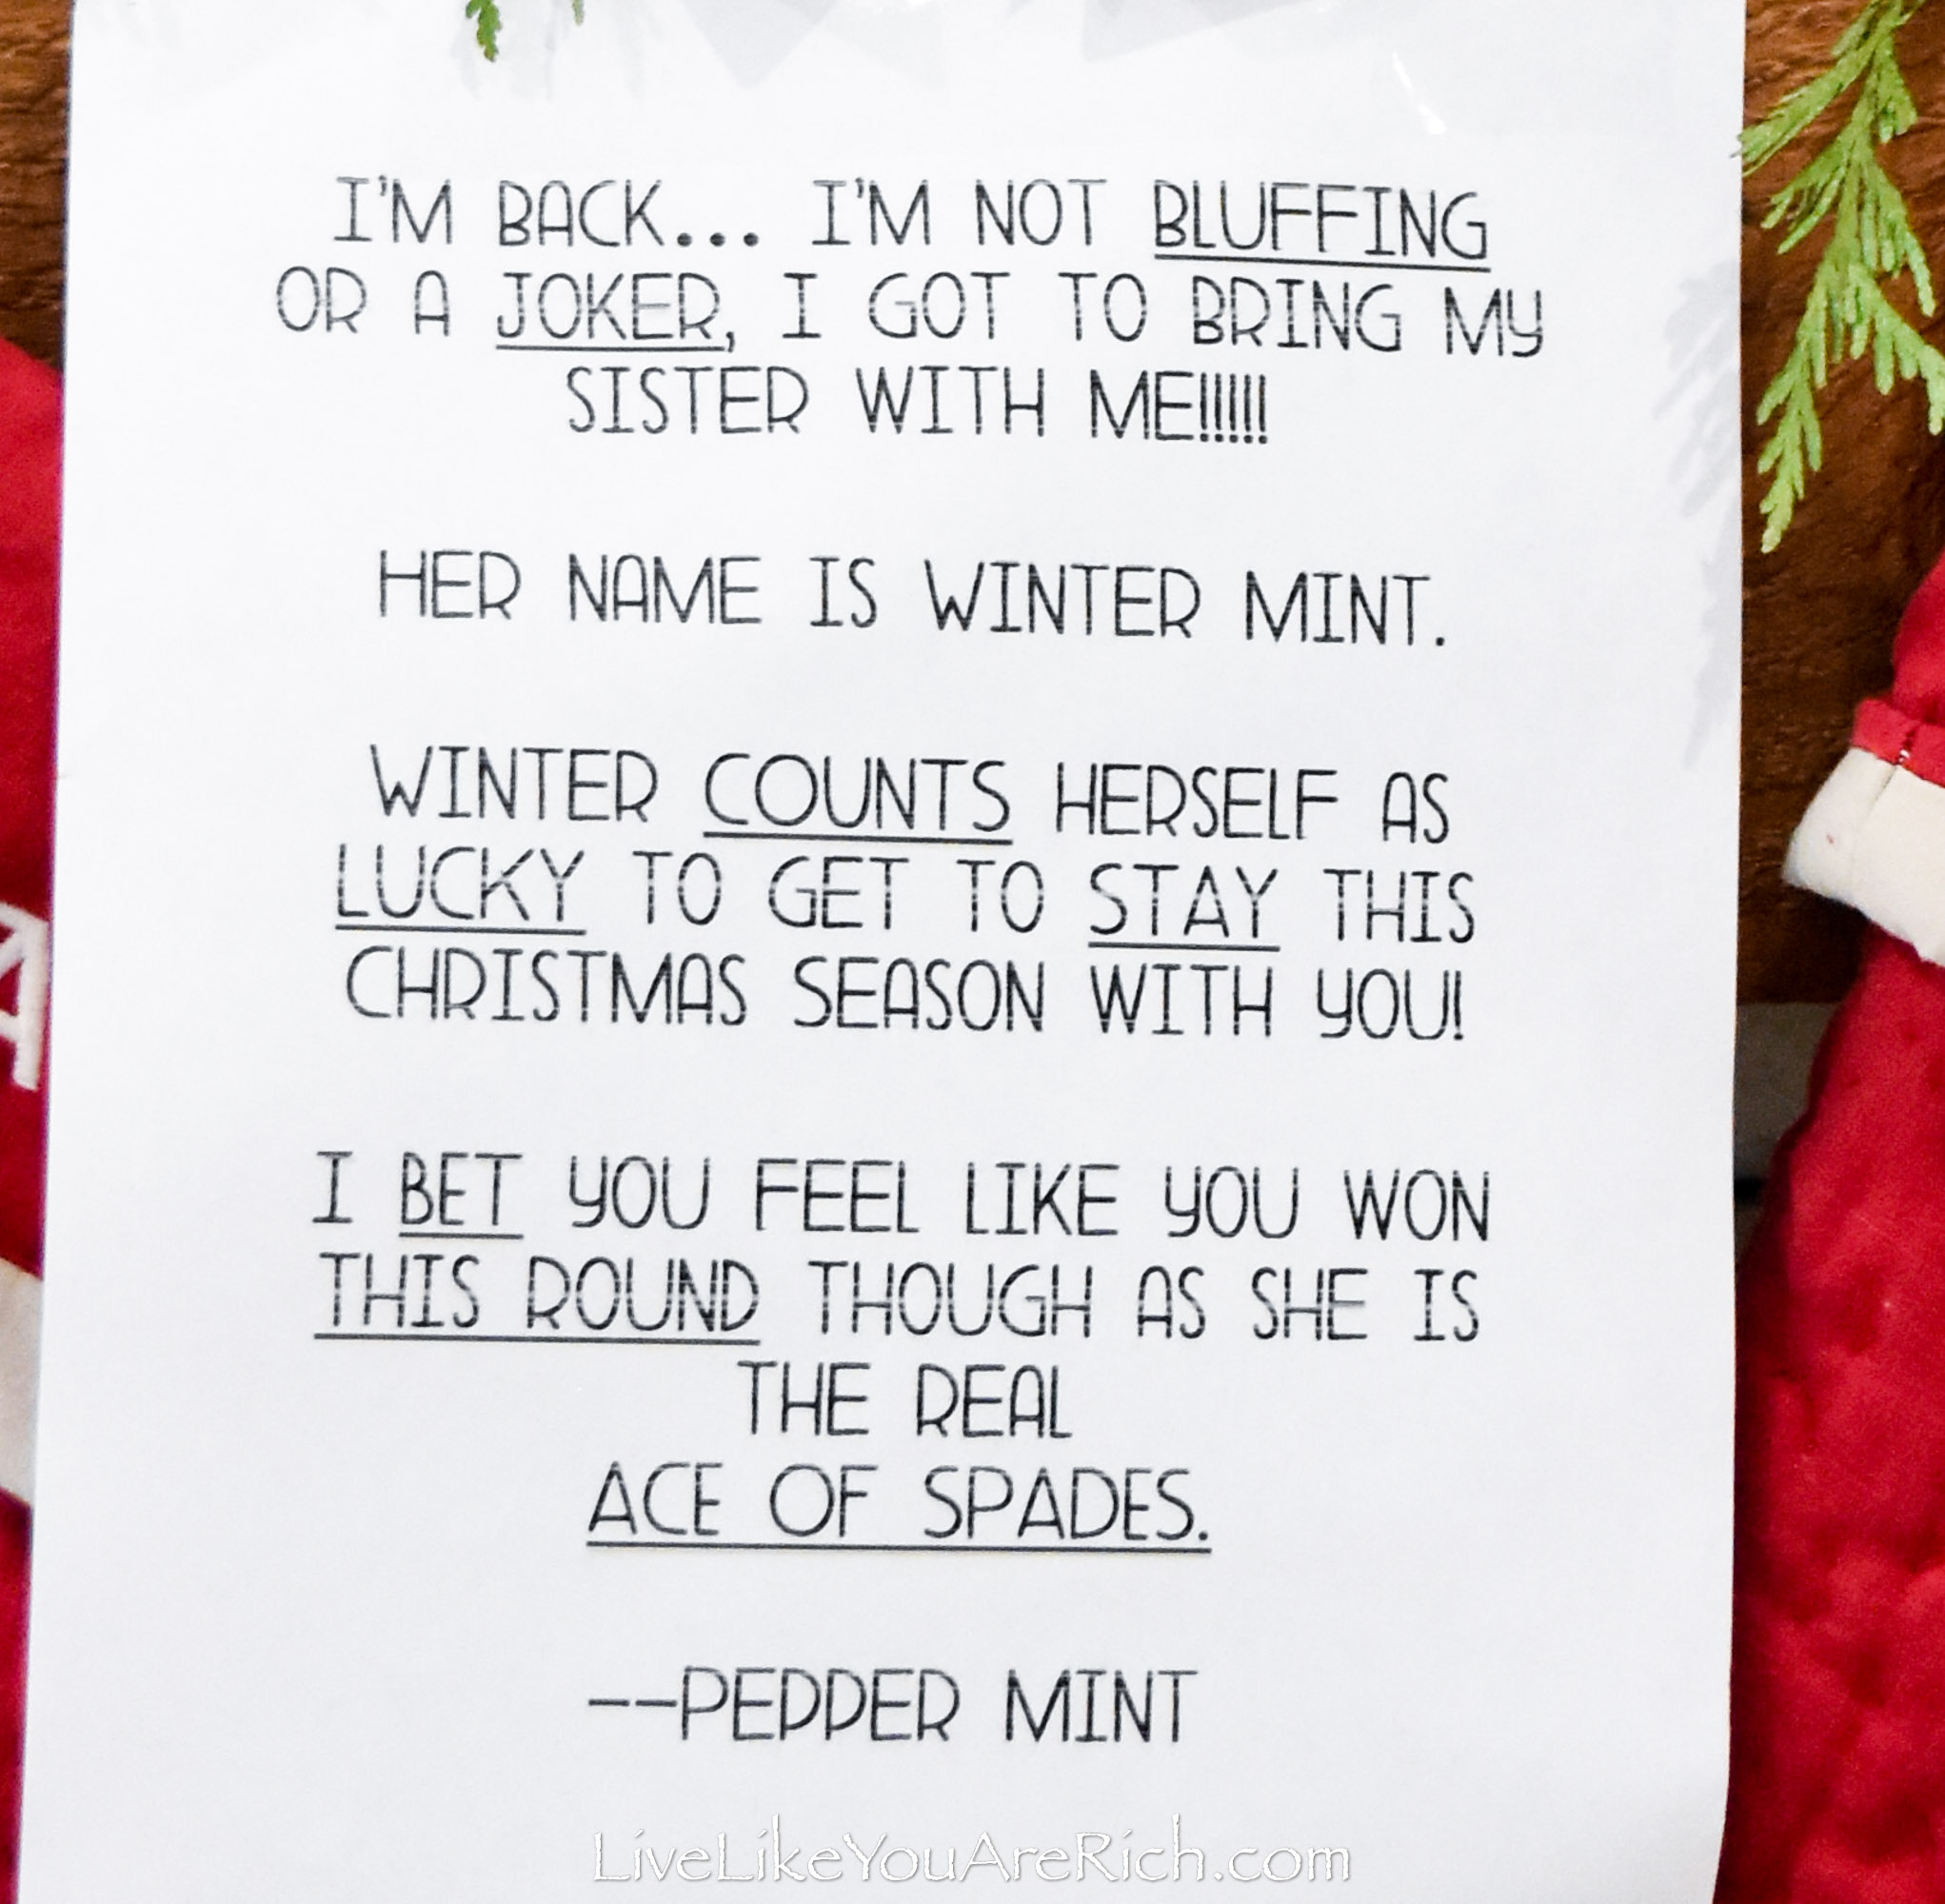 I'M BACK... I'M NOT BLUFFING
OR A JOKER, I GOT TO BRING MY
SISTER WITH ME!!!!!!
HER NAME IS WINTER MINT.
WINTER COUNTS HERSELF AS
LUCKY TO GET TO STAY THIS
CHRISTMAS SEASON WITH YOU!
I BET YOU FEEL LIKE YOU WON
THIS ROUND THOUGH AS SHE IS
THE REAL
ACE OF SPADES.
--PEPPER MINT
LiveLikeYouAreRich.com
A